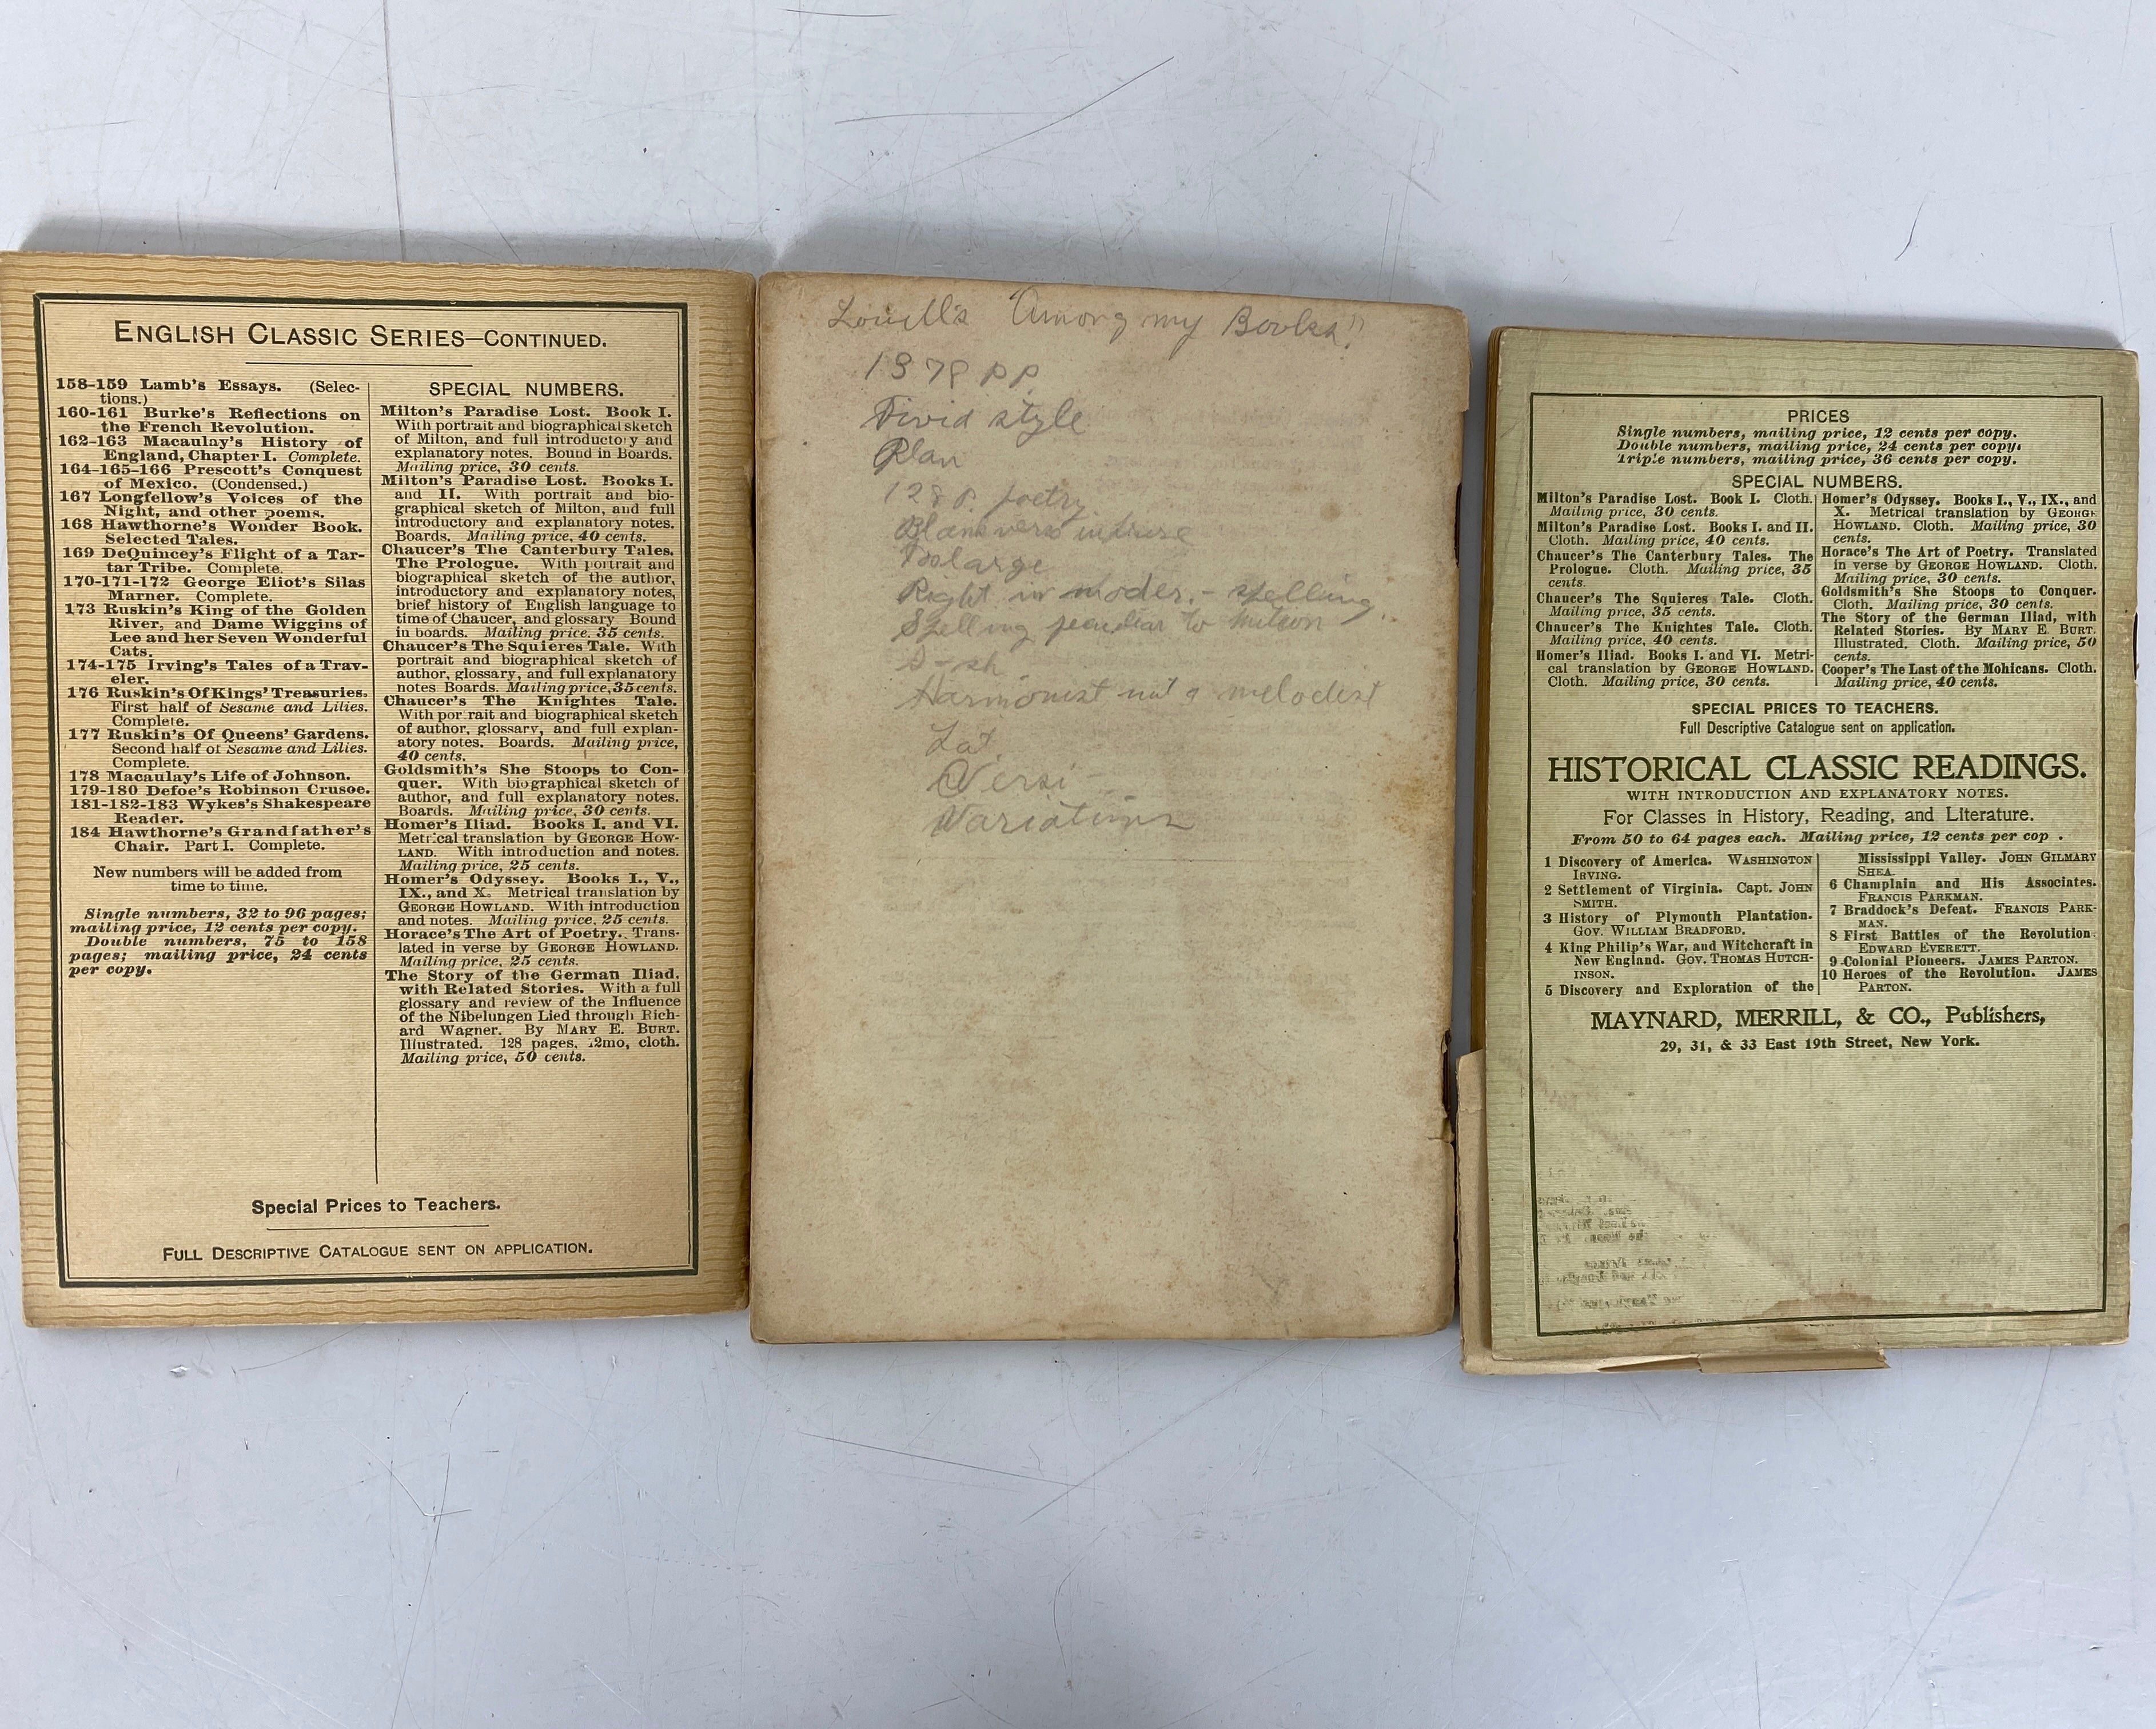 ENGLISH CLASSIC SERIES—CONTINUED.
158-159 Lamb's Essays. (Selec-
tions.)
160-161 Burke's Reflections on
the French Revolution.
162-163 Macaulay's History of
England, Chapter I. Complete.
164-165-166 Prescott's Conquest
of Mexico. (Condensed.)
167 Longfellow's Voices of the
Night, and other poems.
168 Hawthorne's Wonder Book.
Selected Tales.
169 DeQuincey's Flight of a Tar-
tar Tribe. Complete.
170-171-172 George Eliot's Silas
Marner. Complete.
173 Ruskin's King of the Golden
River, and Dame Wiggins of
Lee and her Seven Wonderful
Cats.
174-175 Irving's Tales of a Trav-
eler.
176 Ruskin's Of Kings' Treasuries.
First half of Sesame and Lilies.
Complete.
177 Ruskin's Of Queens' Gardens.
Second half of Sesame and Lilies.
Complete.
178 Macaulay's Life of Johnson.
179-180 Defoe's Robinson Crusoe.
181-182-183 Wykes's Shakespeare
Reader.
184 Hawthorne's Grandfather's
Chair. Part I. Complete.
New numbers will be added from
time to time.
Single numbers, 32 to 96 pages;
mailing price, 12 cents per copy.
Double numbers, 75 to 158
pages; mailing price, 24 cents
per copy.
SPECIAL NUMBERS.
Milton's Paradise Lost. Book I.
With portrait and biographical sketch
of Milton, and full introductory and
explanatory notes. Bound in Boards.
Mailing price, 30 cents.
Milton's Paradise Lost. Books I.
and II. With portrait and bio-
graphical sketch of Milton, and full
introductory and explanatory notes.
Boards. Mailing price, 40 cents.
Chaucer's The Canterbury Tales.
The Prologue. With portrait and
biographical sketch of the author,
introductory and explanatory notes,
brief history of English language to
time of Chaucer, and glossary Bound
in boards. Mailing price, 35 cents.
Chaucer's The Squieres Tale. With
portrait and biographical sketch of
author, glossary, and full explanatory
notes Boards. Mailing price, 35 cents.
Chaucer's The Knightes Tale.
With portrait and biographical sketch
of author, glossary, and full explan-
atory notes. Boards. Mailing price,
40 cents.
Goldsmith's She Stoops to Con-
quer. With biographical sketch of
author, and full explanatory notes.
Boards. Mailing price, 30 cents.
Homer's Iliad. Books I. and VI.
Metrical translation by GEORGE HOW-
LAND. With introduction and notes.
Mailing price, 25 cents.
Homer's Odyssey. Books I., V.,
IX., and X. Metrical translation by
GEORGE HOWLAND. With introduction
and notes. Mailing price, 25 cents.
Horace's The Art of Poetry. Trans-
lated in verse by GEORGE HOWLAND.
Mailing price, 25 cents.
The Story of the German Iliad,
with Related Stories. With a full
glossary and review of the Influence
of the Nibelungen Lied through Rich-
ard Wagner. By MARY E. BURT.
Illustrated. 128 pages. 12mo, cloth.
Mailing price, 50 cents.
Special Prices to Teachers.
FULL DESCRIPTIVE CATALOGUE SENT ON APPLICATION.
Lowell's "Among my Books"
1378 pp
Vivid style
Plan
128 p. poetry
Blank verse
Too large
Right in moder.- spelling.
Spelling peculiar to Milton
S-sh
Harmonist not a melodest
Lat.
Versi-
Variations
PRICES
Single numbers, mailing price, 12 cents per copy.
Double numbers, mailing price, 24 cents per copy.
Triple numbers, mailing price, 36 cents per copy.
SPECIAL NUMBERS.
Milton's Paradise Lost. Book I. Cloth.
Mailing price, 30 cents.
Milton's Paradise Lost. Books I. and II.
Cloth. Mailing price, 40 cents.
Chaucer's The Canterbury Tales. The
Prologue. Cloth. Mailing price, 35
cents.
Chaucer's The Squieres Tale. Cloth.
Mailing price, 35 cents.
Chaucer's The Knightes Tale. Cloth.
Mailing price, 40 cents.
Homer's Iliad. Books I. and VI. Metri-
cal translation by GEORGE HOWLAND.
Cloth. Mailing price, 30 cents.
Homer's Odyssey. Books I., V., IX., and
X. Metrical translation by GEORGE
HOWLAND. Cloth. Mailing price, 30
cents.
Horace's The Art of Poetry. Translated
in verse by GEORGE HOWLAND. Cloth.
Mailing price, 30 cents.
Goldsmith's She Stoops to Conquer.
Cloth. Mailing price, 30 cents.
The Story of the German Iliad, with
Related Stories. By MARY E. BURT.
Illustrated. Cloth. Mailing price, 50
cents.
Cooper's The Last of the Mohicans. Cloth.
Mailing price, 40 cents.
SPECIAL PRICES TO TEACHERS.
Full Descriptive Catalogue sent on application.
HISTORICAL CLASSIC READINGS.
WITH INTRODUCTION AND EXPLANATORY NOTES.
For Classes in History, Reading, and Literature.
From 50 to 64 pages each. Mailing price, 12 cents per cop .
1 Discovery of America. WASHINGTON
IRVING.
2 Settlement of Virginia. Capt. JOHN
SMITH.
3 History of Plymouth Plantation.
Gov. WILLIAM BRADFORD.
4 King Philip's War, and Witchcraft in
New England. Gov. THOMAS HUTCH-
INSON.
5 Discovery and Exploration of the
Mississippi Valley. JOHN GILMARY
SHEA.
6 Champlain and His Associates.
FRANCIS PARKMAN.
7 Braddock's Defeat. FRANCIS PARK-
MAN.
8 First Battles of the Revolution
EDWARD EVERETT.
9 Colonial Pioneers. JAMES PARTON.
10 Heroes of the Revolution. JAMES
PARTON.
MAYNARD, MERRILL, & CO., Publishers,
29, 31, & 33 East 19th Street, New York.